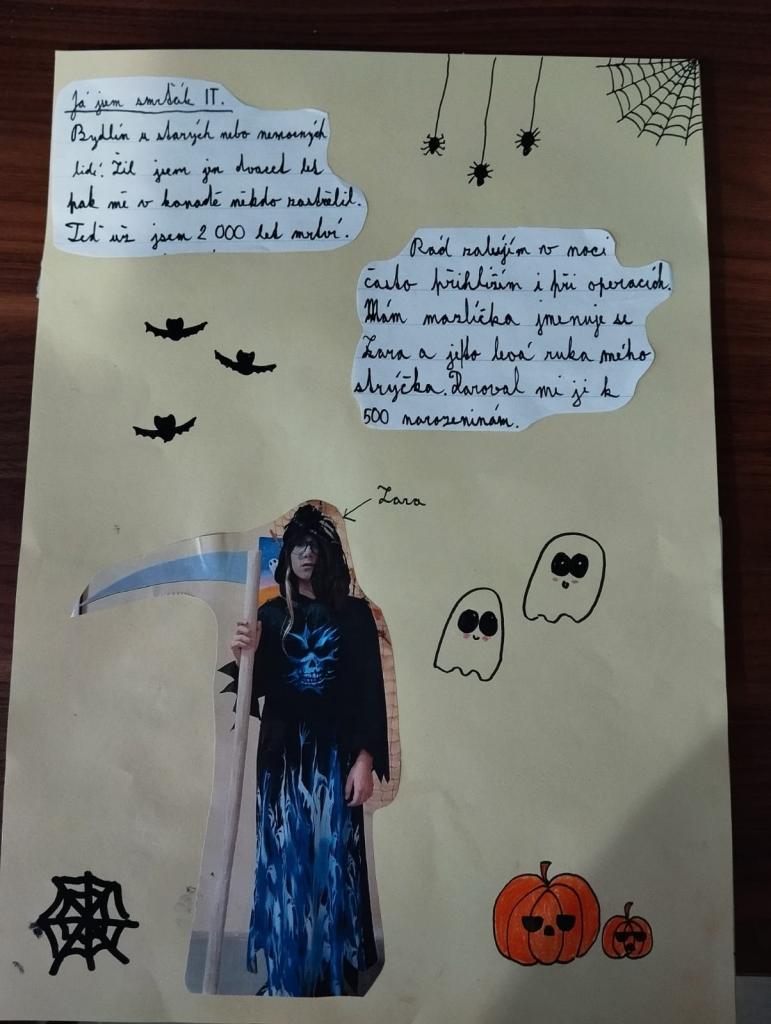 Já jsem smrťák IT.
Bydlím u starých nebo nemocných
lidí. Žil jsem jen dvacet let
pak mě v kanadě někdo zastřelil.
Teď už jsem 2 000 let mrtví.
Rád zabíjím v noci
často přihlížím i při operacích.
Mám mazlíčka jmenuje se
Zara a je to levá ruka mého
strýčka. Daroval mi ji k
500 narozeninám.
Zara